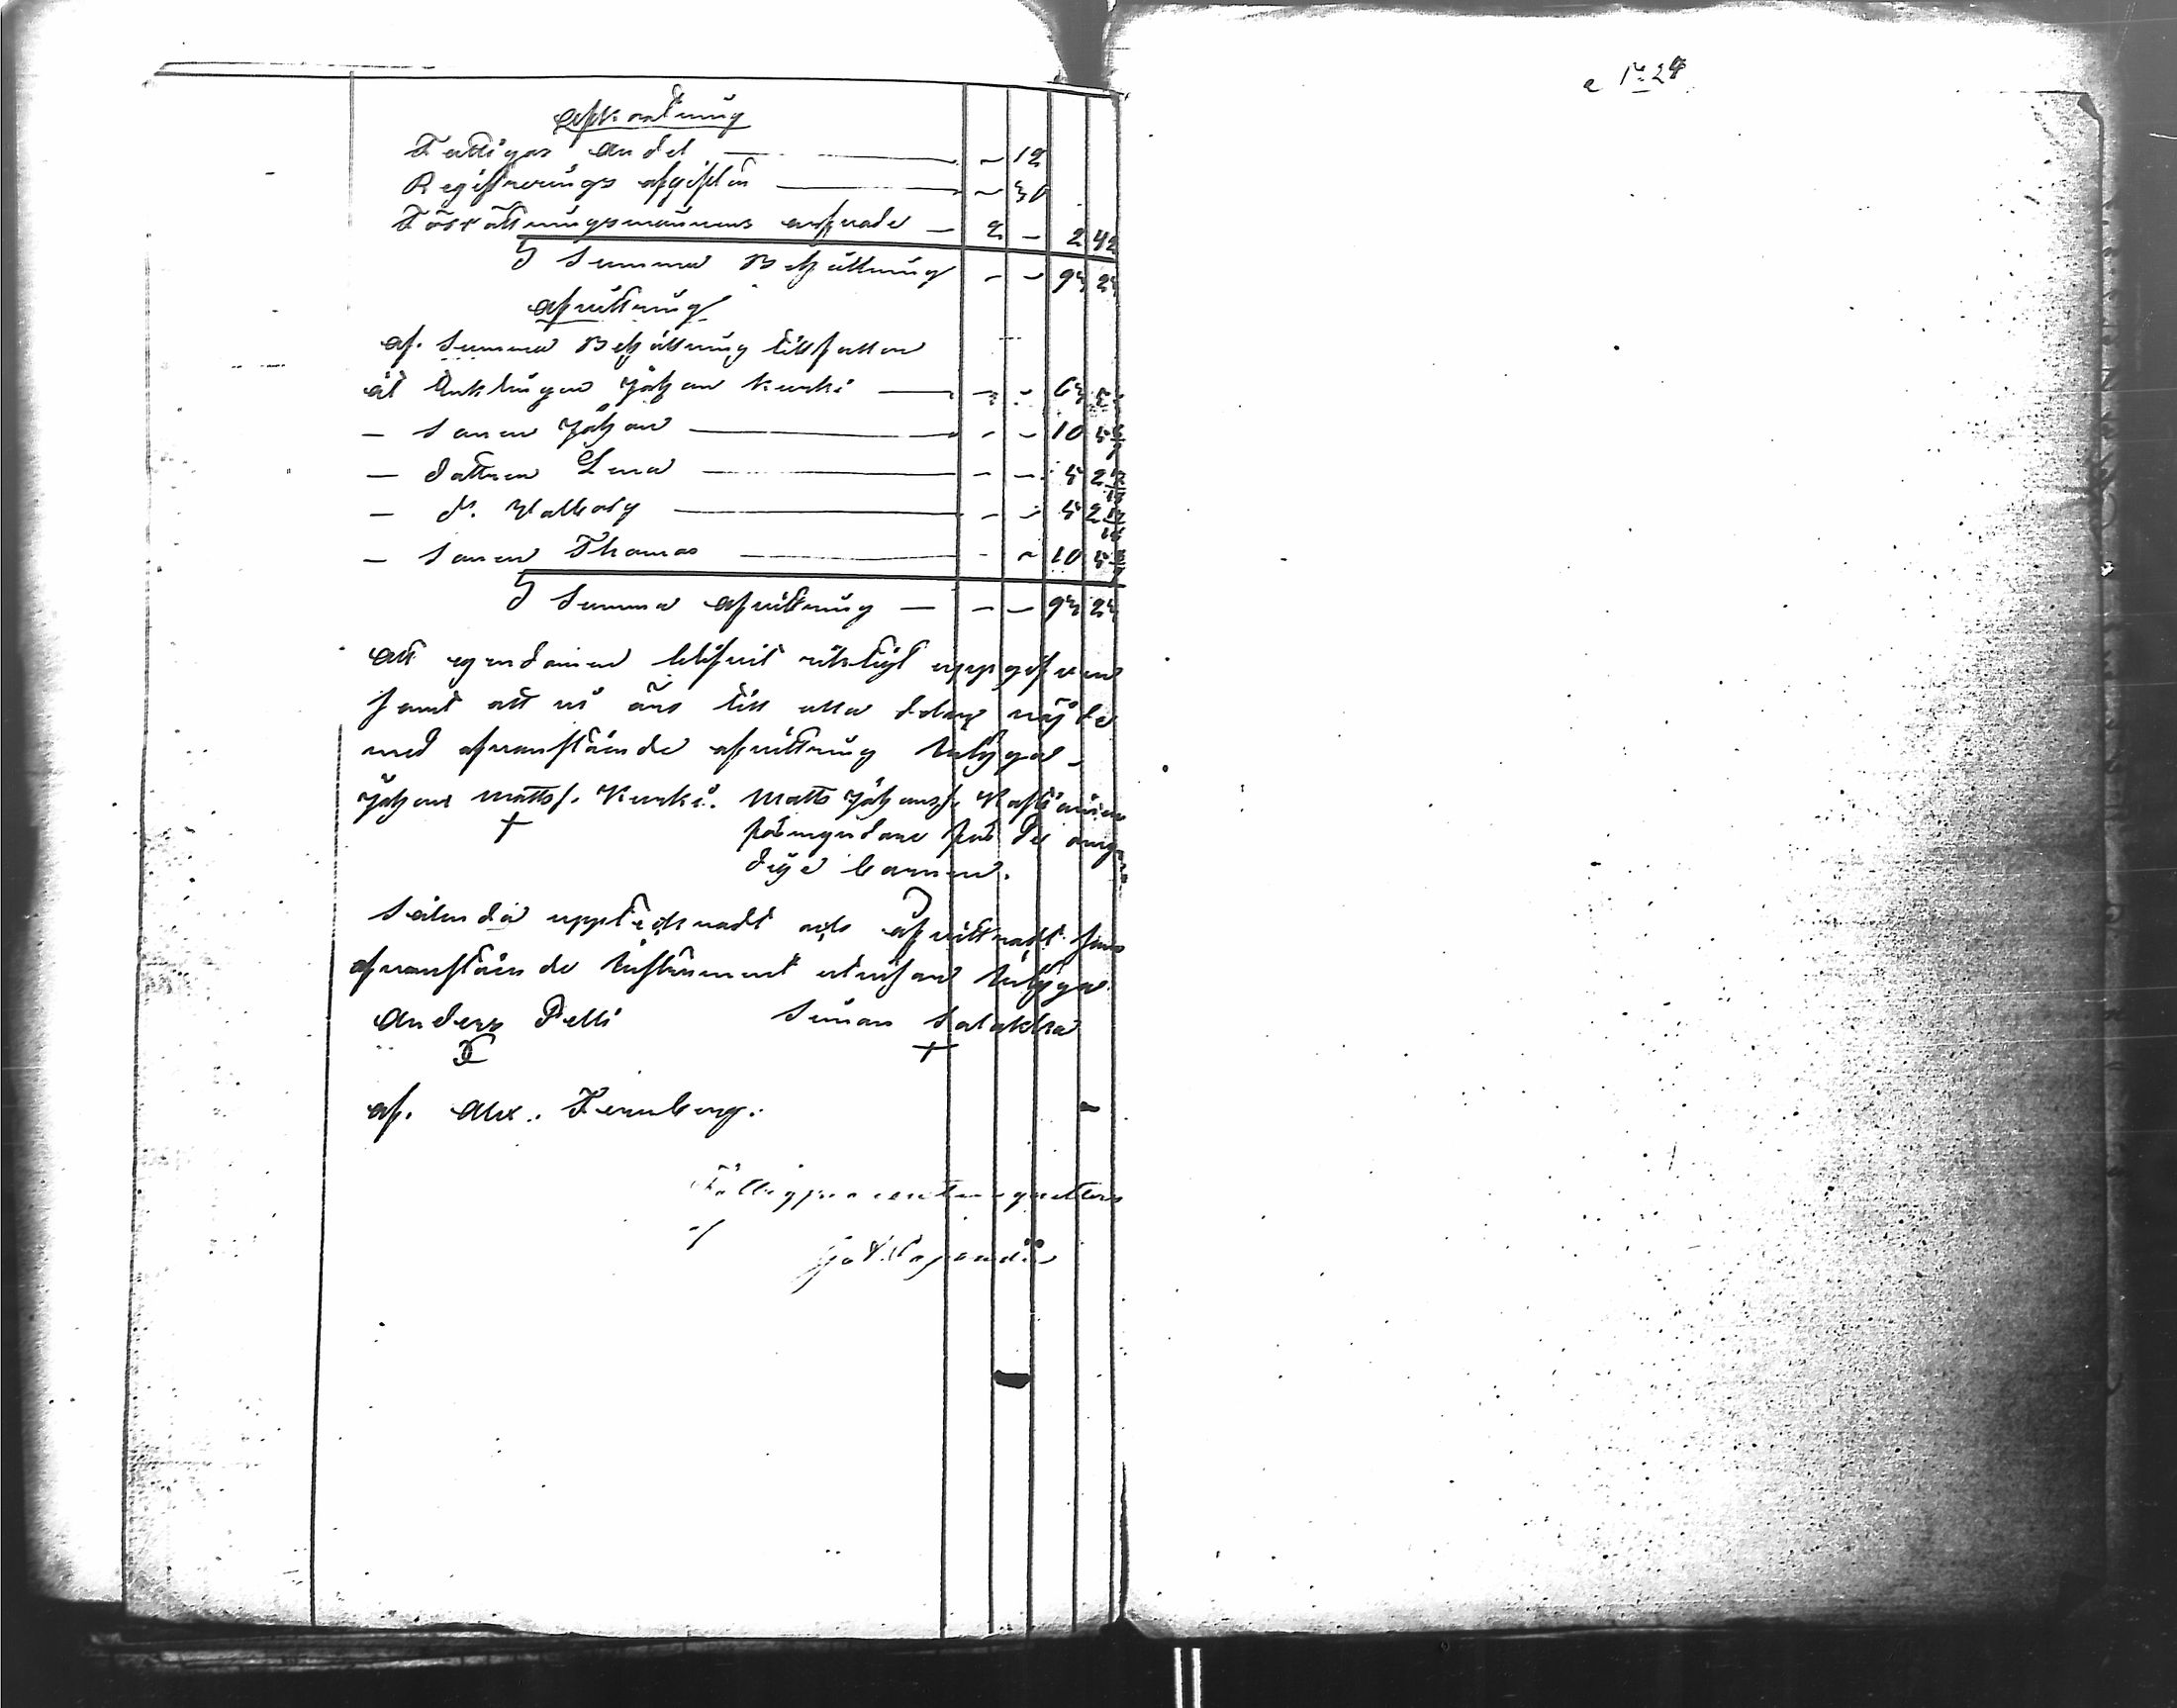 a No 24
Afkortning
Fattigas andel — ~ 12
Registrerings afgiften — ~ 30
Förrättningsmannens arfvode — 2 – 2 42
Summa Behållning – – 93 23
Afvittring
Af Summa Behållning tillfaller
åt Enklingen Johan Kurki — 63
— Sonen Johan — 10
— dottren Lena — 5 2
— do Walborg — 5 2
— Sonen Thomas — 10
Summa Afvittring — – – 93 23
Att egendomen blifvit riktigt uppgifven
samt att vi äro till alla delar nöjde
med ofvanstående afvittring betygar
Johan Matts. Kurki. Matts Johanss.
förmyndare för de omyn
dige barnen.
Sålunda upptecknadt och afvittradt som
ofvanstående Instrument utvisar betygar
Anders Pelli Simon
af Alex. Fernberg.